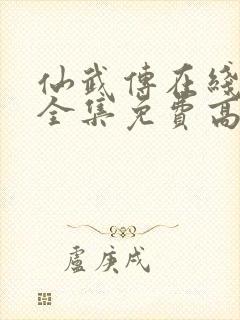 仙武傳在綫
全集免費高
盧庚戌